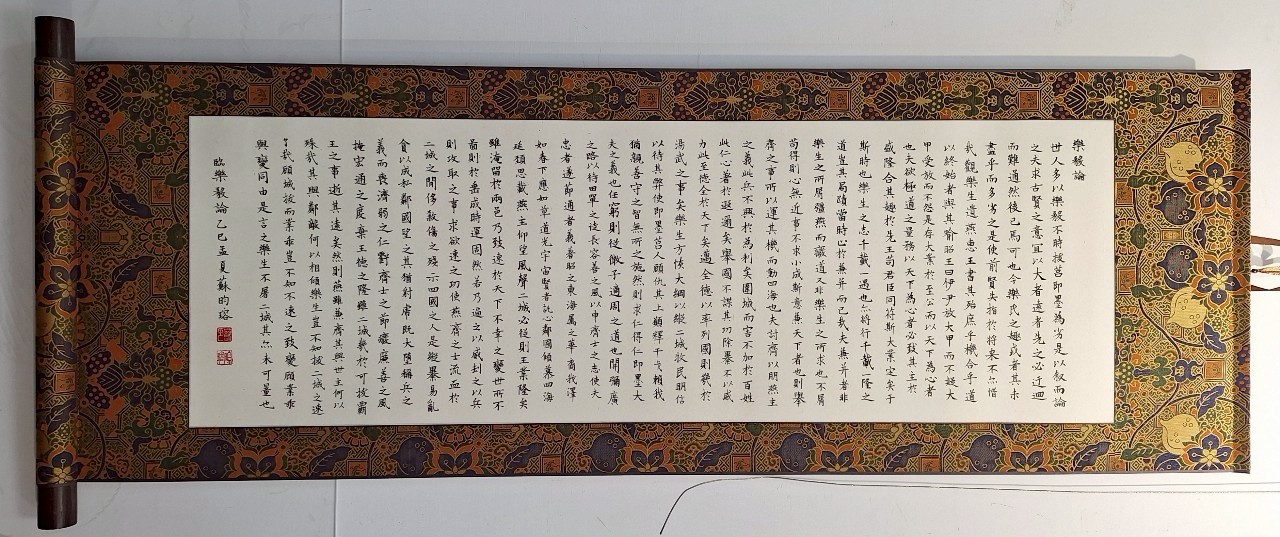 樂毅論
世人多以樂毅不時拔莒即墨為劣是以敘而論
之夫求古賢之意宜以大者遠者先之必迂迴
而難通然後已焉可也今樂氏之趣或者其未
盡乎而多劣之是使前賢失指於將來不亦惜
哉觀樂生遺燕惠王書其殆庶乎機合乎道
以終始者與其喻昭王曰伊尹放大甲而不疑大
甲受放而不怨是存大業於至公而以天下為心者
也夫欲極道之量務以天下為心者必致其主於
盛隆合其趣於先王苟君臣同符斯大業定矣于
斯時也樂生之志千載一遇也亦將行千載一隆之
道豈其局蹟當時止於兼并而已哉夫兼并者非
樂生之所屑彊燕而廢道又非樂生之所求也不屑
苟得則心無近事不求小成斯意兼天下者也則舉
齊之事所以運其機而動四海也夫討齊以明燕主
之義此兵不興於為利矣圍城而害不加於百姓
此仁心著於遐邇矣舉國不謀其功除暴不以威
力此至德全於天下矣邁全德以率列國則幾於
湯武之事矣樂生方恢大綱以縱二城牧民明信
以待其弊使即墨莒人顧仇其上願釋干戈賴我
猶親善守之智無所之施然則求仁得仁即墨大
夫之義也任窮則從微子適周之道也開彌廣
之路以待田單之徒長容善之風以申齊士之志使夫
忠者遂節通者義著昭之東海屬之華裔我澤
如春下應如草道光宇宙賢者託心鄰國傾慕四海
延頸思戴燕主仰望風聲二城必從則王業隆矣
雖淹留於兩邑乃致速於天下不幸之變世所不
圖則於垂成時運固然若乃逼之以威劫之以兵
則攻取之事求欲速之功使燕齊之士流血於
二城之間侈殺傷之殘示四國之人是縱暴易亂
貪以成私鄰國望之其猶豺虎既大墮稱兵之
義而喪濟弱之仁虧齊士之節廢廉善之風
掩宏通之度棄王德之隆雖二城幾於可拔霸
王之事逝其遠矣然則燕雖兼齊其與世主何以
殊哉其與鄰敵何以相傾樂生豈不知拔二城之速
了哉顧城拔而業乖豈不知不速之致變顧業乖
與變同由是言之樂生不屠二城其亦未可量也
臨樂毅論乙巳孟夏蘇昀瑢